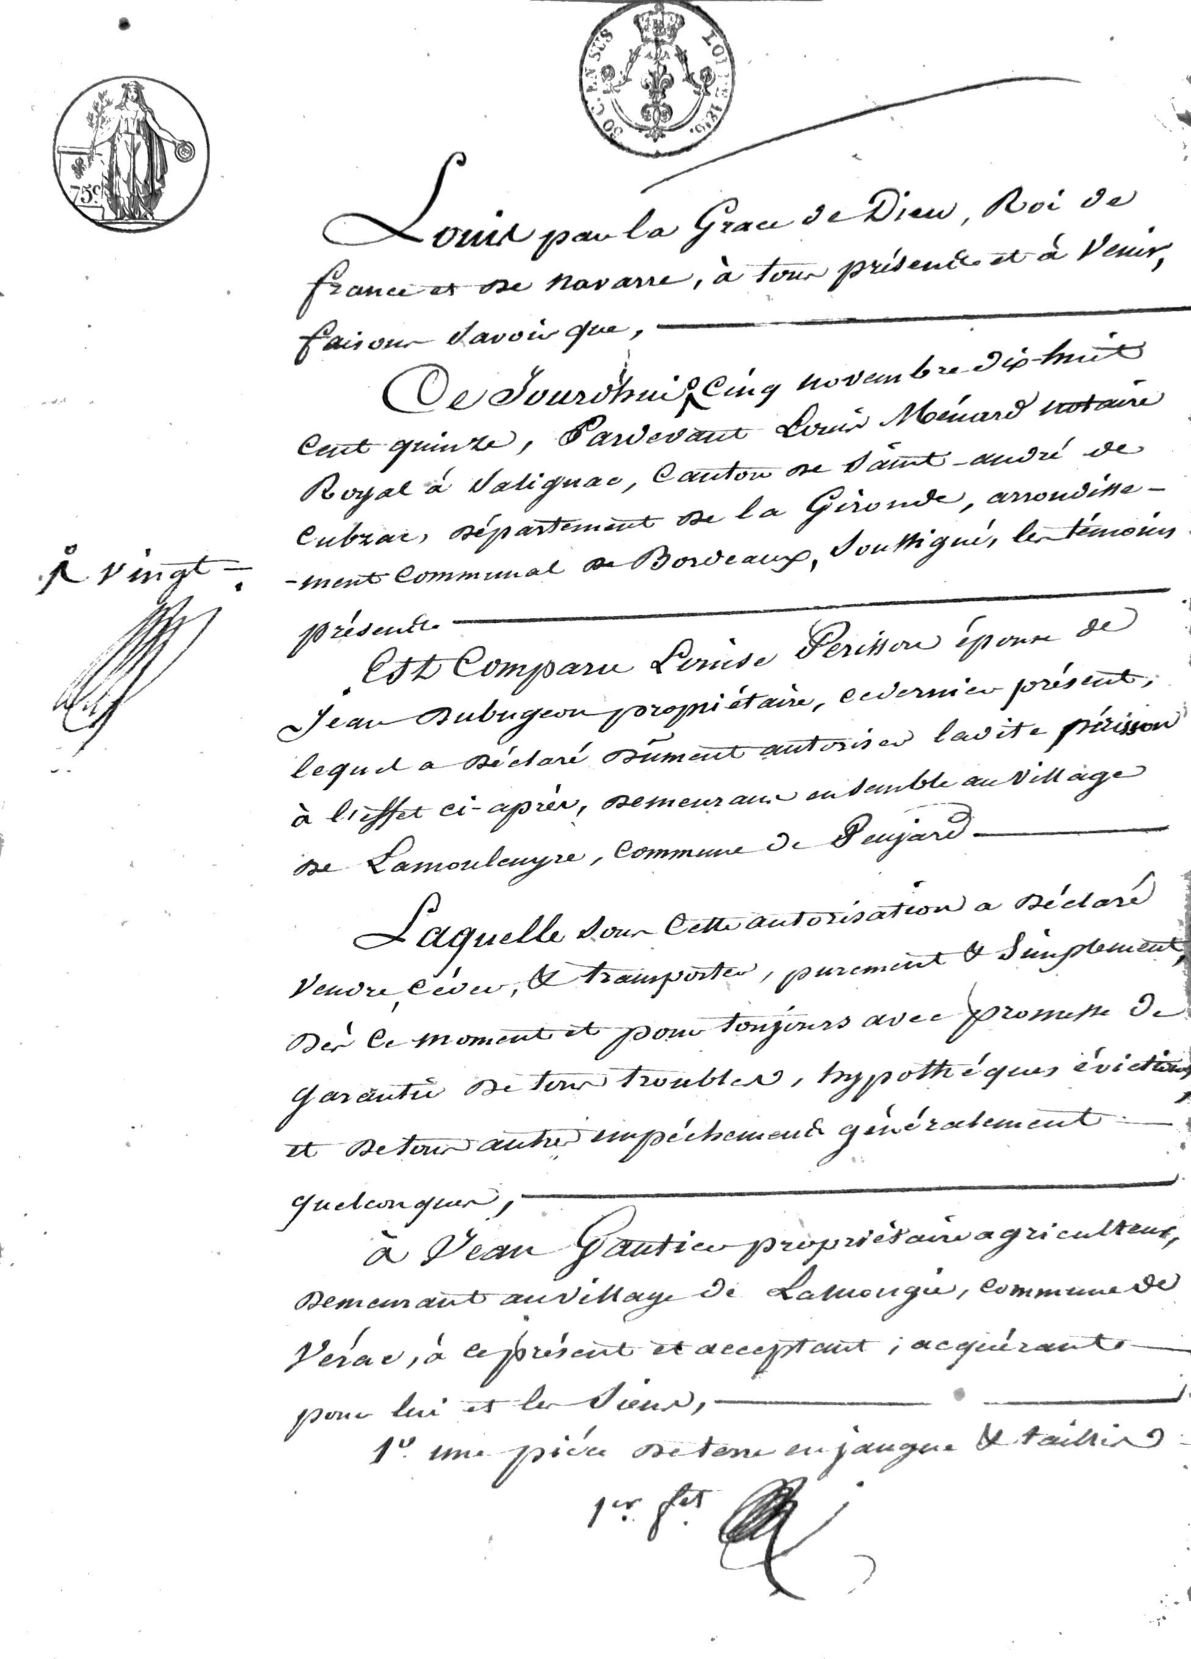 75c
50 C. EN SUS
LOI DE 1816.
Louis par la Grace de Dieu, Roi de
france et de navarre, à tous présents et à Venir,
faisons Savoir que,
Ce Jourd'hui cinq novembre dix-huit
cent quinze, Pardevant Louis Ménard notaire
Royal à Salignac, Canton de Saint-andré de
Cubzac, département de la Gironde, arrondisse-
-ment Communal de Bordeaux, Soussigné, les témoins
vingt
présents
Est Comparu Louise Perisson épouse de
Jean Dubugeon propriétaire, ce dernier présent,
lequel a déclaré dûment autoriser ladite périsson
à l'effet ci-après, demeurans ensemble au Village
de Lamouleuyre, Commune de Peujard
Laquelle sous Cette autorisation a déclaré
Vendre, Céder, & transporter, purement & Simplement,
dès ce moment et pour toujours avec promesse de
garantie de tous troubles, hypothéques évictions,
et de tous autres empéchements généralement
quelconques,
à Jean Gautier propriétaire agriculteur,
demeurant au Village de Lamongie, commune de
Vérac, à ce présent et acceptant, acquérant
pour lui et les Siens,
1º une piéce de terre en jaugue & taillis
1er. fet.